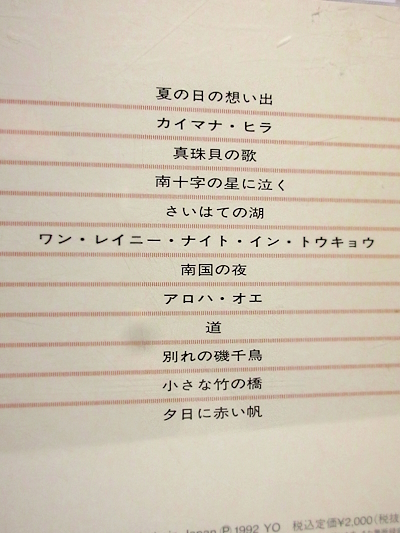 夏の日の想い出
カイマナ・ヒラ
真珠貝の歌
南十字の星に泣く
さいはての湖
ワン・レイニー・ナイト・イン・トウキョウ
南国の夜
アロハ・オエ
道
別れの磯千鳥
小さな竹の橋
夕日に赤い帆
in Japan Ⓟ1992 YO 税込定価¥2,000(税抜